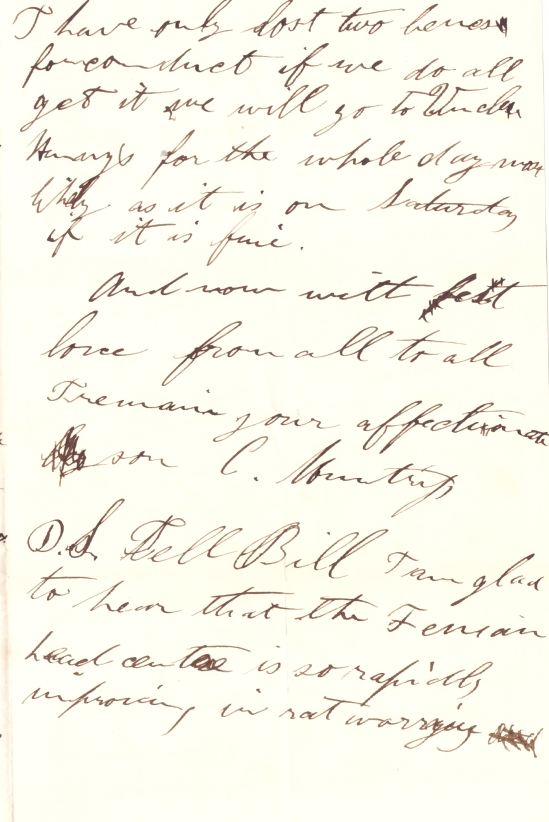 I have only lost two
for conduct if we do all
get it we will go to Uncle
Henry's for the whole day
as it is on Saturday
if it is fine.
And now with best
love from all to all
I remain your affectionate
son C.
P.S. Tell Bill I am glad
to hear that the Fenian
head centre is so rapidly
improving in rat worrying